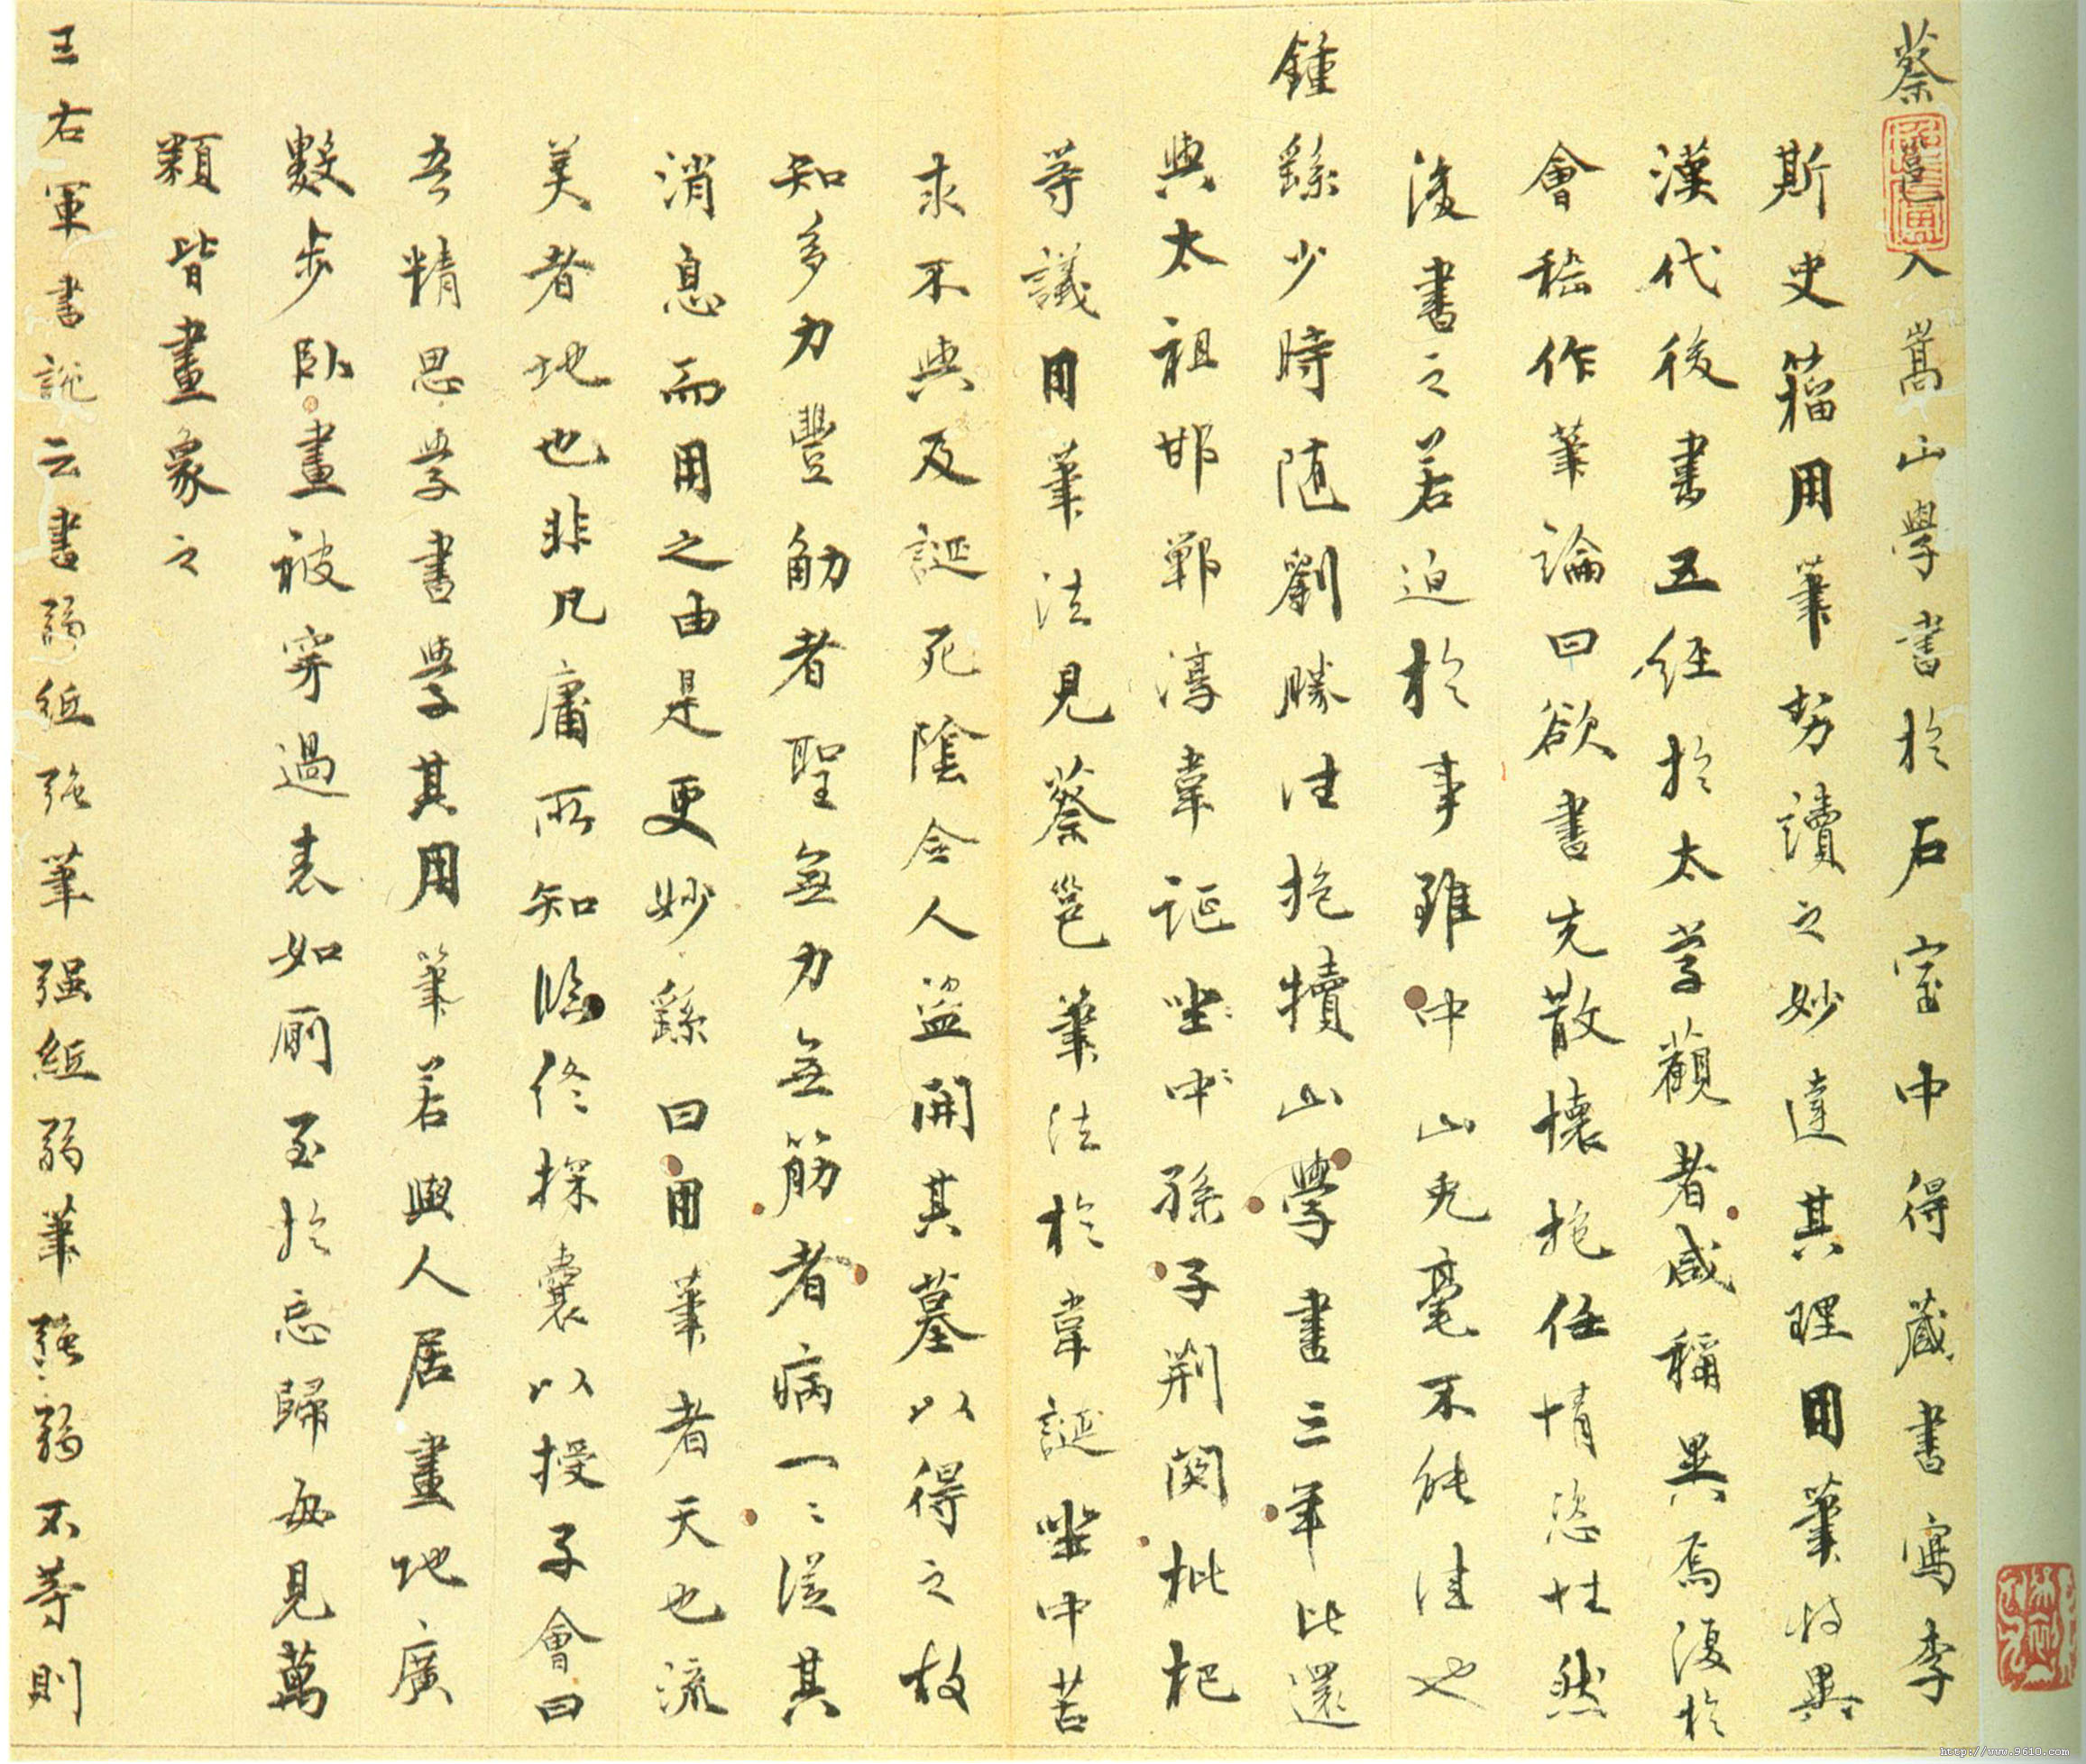 蔡邕入嵩山學書於石室中得藏書寫李
斯史籀用筆勢讀之妙達其理用筆特異
漢代後書五經於太學觀者咸稱異焉復於
會稽作筆論曰欲書先散懷抱任情恣性然
後書之若迫於事雖中山兔毫不能佳也
鍾繇少時隨劉勝往抱犢山學書三年比還
與太祖邯鄲淳韋誕坐中孫子荊關枇杷
等議用筆法見蔡邕筆法於韋誕坐中苦
求不與及誕死陰令人盜開其墓以得之故
知多力豐觔者聖無力無筋者病一〻從其
消息而用之由是更妙繇曰用筆者天也流
美者地也非凡庸所知臨終探囊以授子會曰
吾精思學書學其用筆若與人居畫地廣
數步臥畫被穿過表如廁至於忘歸每見萬
類皆畫象之
王右軍書說云書弱紙強筆强紙弱筆強弱不等則
http://www.9610.com